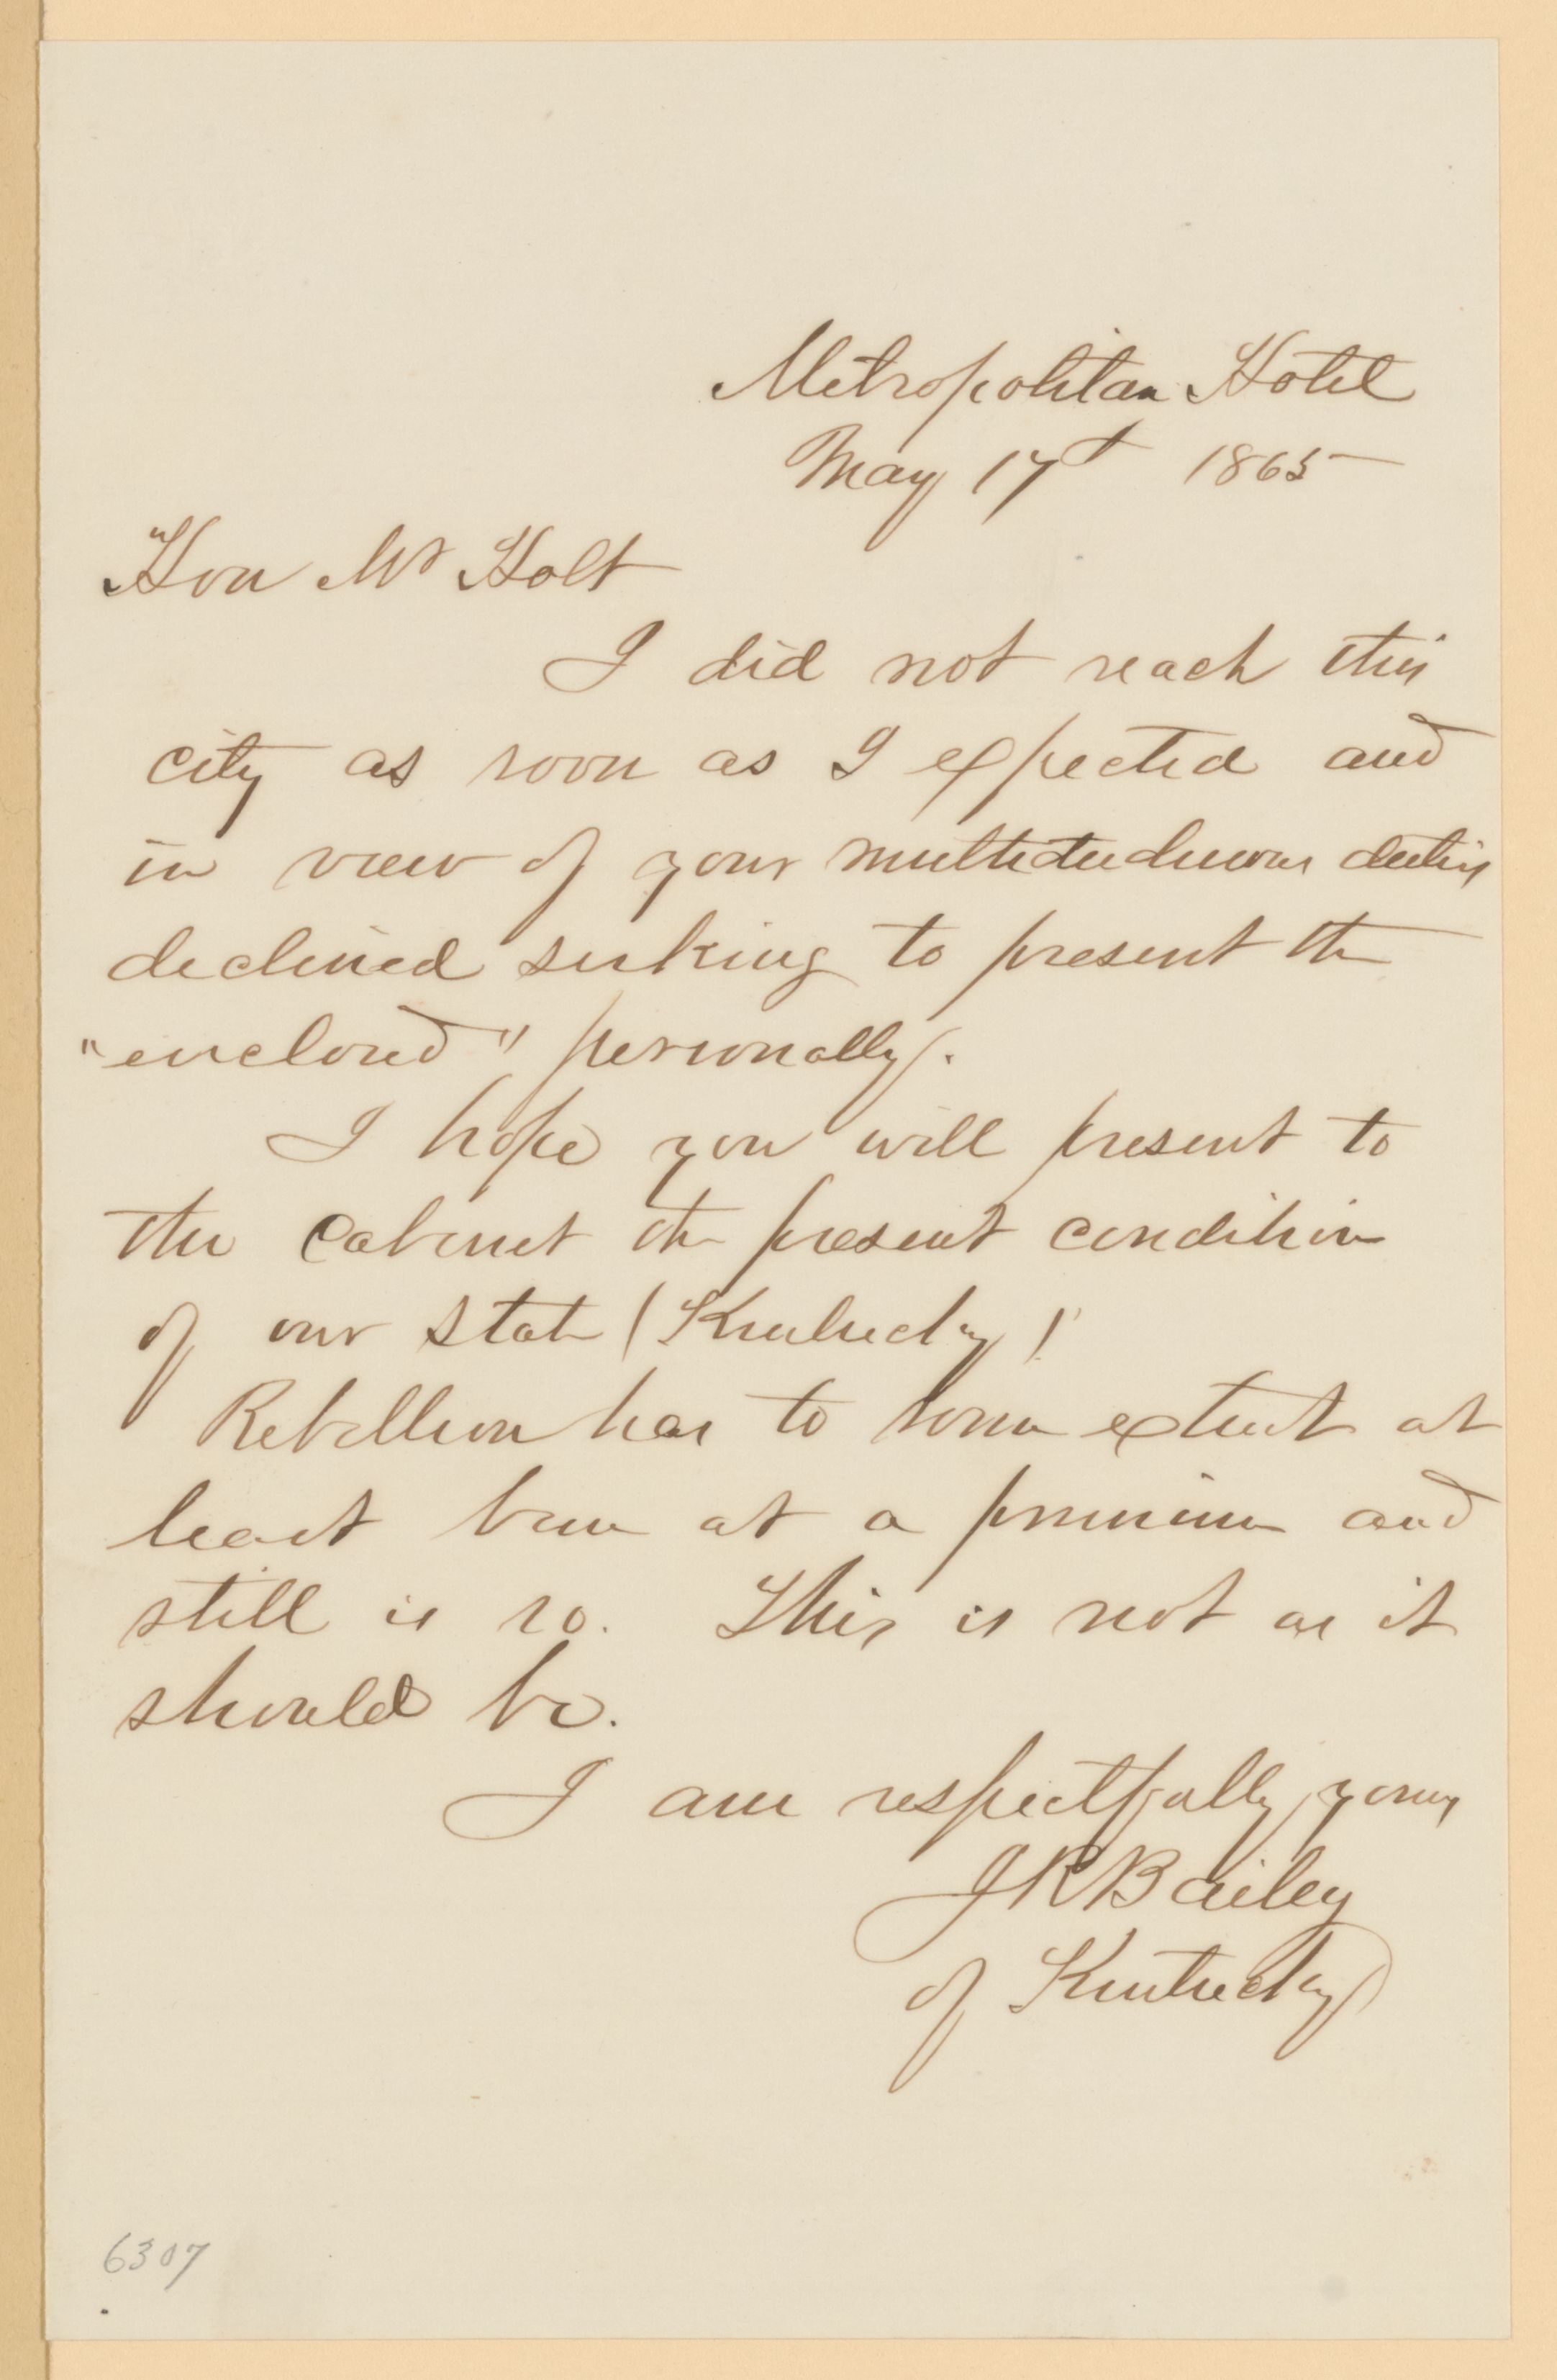 Metropolitan Hotel
May 17th 1865
Hon Mr Holt
I did not reach this
city as soon as I expected and
in view of your multitudinous duties
declined seeking to present the
"enclosed" personally.
I hope you will present to
the Cabinet the present condition
of our State (Kentucky)
Rebellion has to some extent at
least been at a premium and
still is so. This is not as it
should be.
I am respectfully yours
J R Bailey
of Kentucky
6307